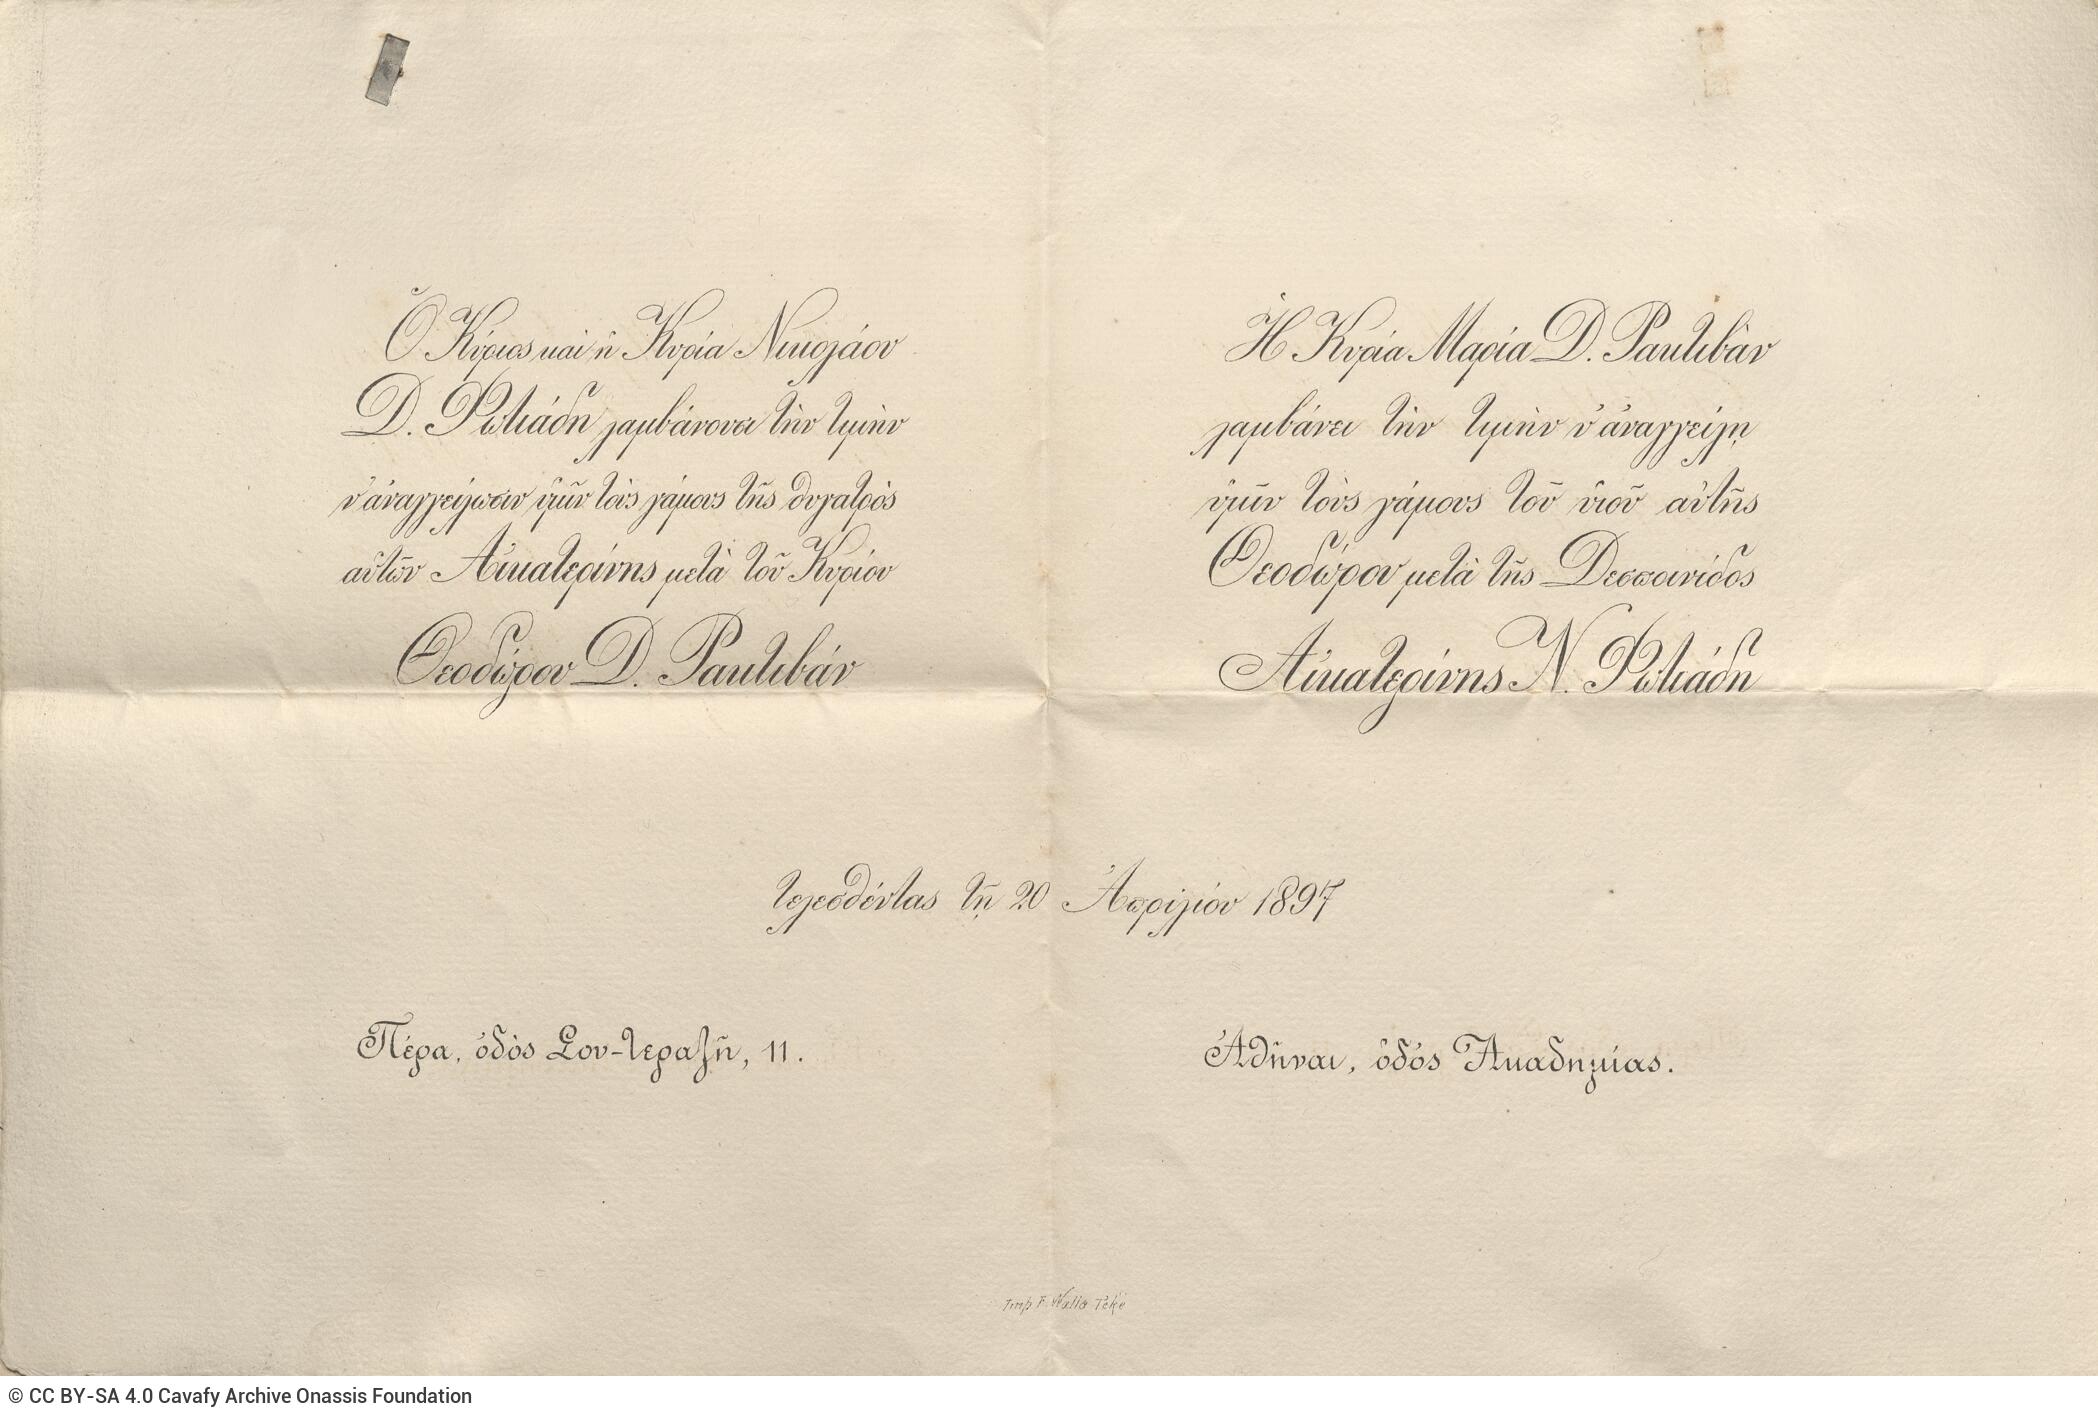 Ὁ Κύριος καὶ ἡ Κυρία Νικολάου
Δ. Φωτιάδη λαμβάνουσι τὴν τιμὴν
ν' ἀναγγείλωσιν ὑμῖν τοὺς γάμους τῆς θυγατρὸς
αὑτῶν Αἰκατερίνης μετὰ τοῦ Κυρίου
Θεοδώρου Δ. Ρακτιβάν
Ἡ Κυρία Μαρία Δ. Ρακτιβὰν
λαμβάνει τὴν τιμὴν ν' ἀναγγείλῃ
ὑμῖν τοὺς γάμους τοῦ υἱοῦ αὑτῆς
Θεοδώρου μετὰ τῆς Δεσποινίδος
Αἰκατερίνης Ν. Φωτιάδη
τελεσθέντας τῇ 20 Ἀπριλίου 1897
Πέρα, ὁδὸς Σου-τεραζῆ, 11.
Ἀθῆναι, ὁδὸς Ἀκαδημίας.
Imp F. Walla Téké
© CC BY-SA 4.0 Cavafy Archive Onassis Foundation